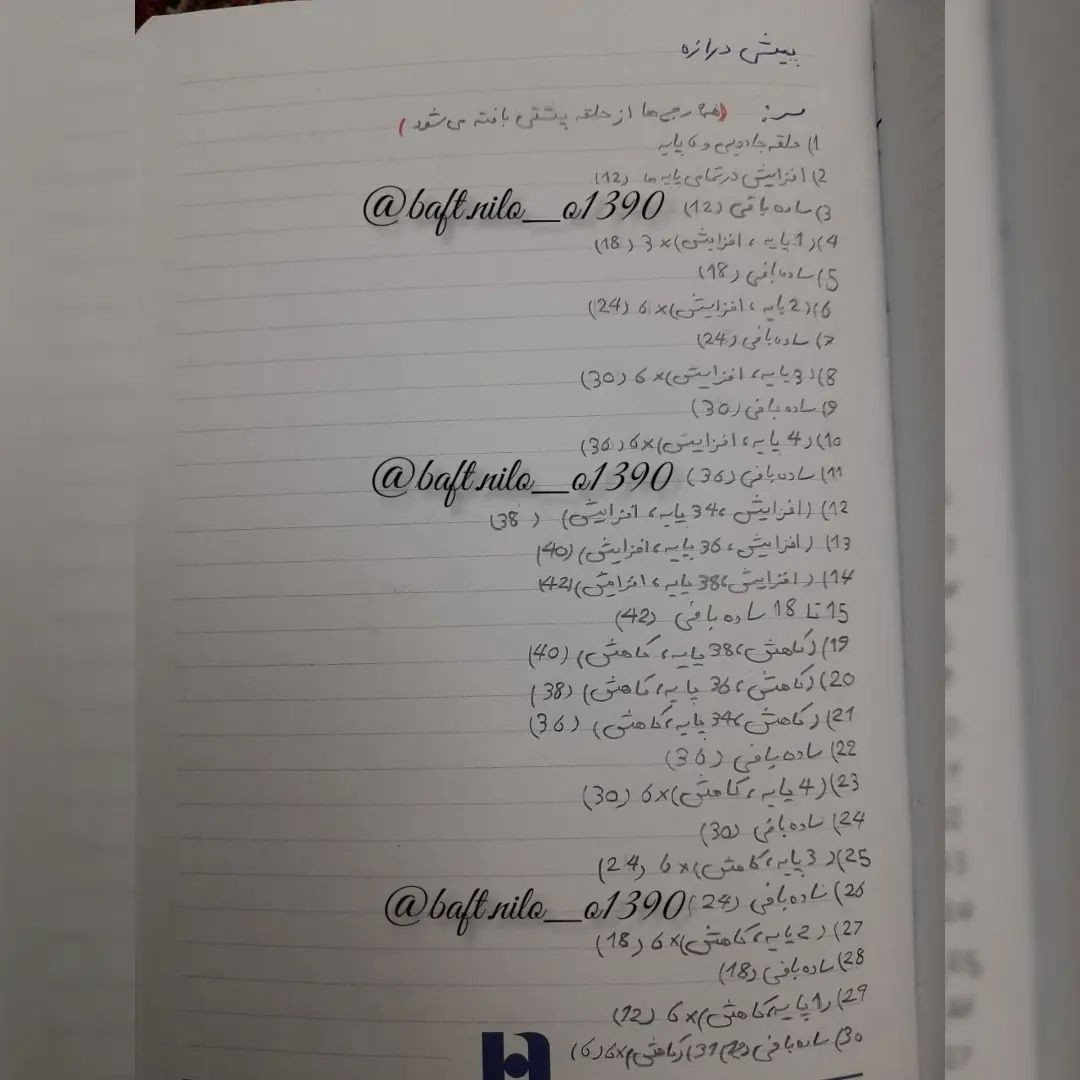 پیشی درازه
سر: (همه رج‌ها از حلقه پشتی بافته می‌شود)
1) حلقه جادویی و 6 پایه
2) افزایش در تمامی پایه ها (12)
@baft.nilo__o1390
3) ساده بافی (12)
4) (1 پایه ، افزایش)×3 (18)
5) ساده بافی (18)
6) (2 پایه ، افزایش)×6 (24)
7) ساده بافی (24)
8) (3 پایه، افزایش)×6 (30)
9) ساده بافی (30)
10) (4 پایه، افزایش)×6 (36)
11) ساده بافی (36)
@baft.nilo__o1390
12) (افزایش ،34 پایه، افزایش) (38)
13) (افزایش، 36 پایه، افزایش) (40)
14) (افزایش،38 پایه، افزایش) (42)
15 تا 18 ساده بافی (42)
19) (کاهش،38 پایه، کاهش) (40)
20) (کاهش، 36 پایه، کاهش) (38)
21) (کاهش،34 پایه، کاهش) (36)
22) ساده بافی (36)
23) (4 پایه، کاهش)×6 (30)
24) ساده بافی (30)
25) (3 پایه، کاهش)×6 (24)
26) ساده بافی (24)
@baft.nilo__o1390
27) (2 پایه، کاهش)×6 (18)
28) ساده بافی (18)
29) (1 پایه، کاهش)×6 (12)
30) ساده بافی (12) 31) (کاهش)×6 (6)